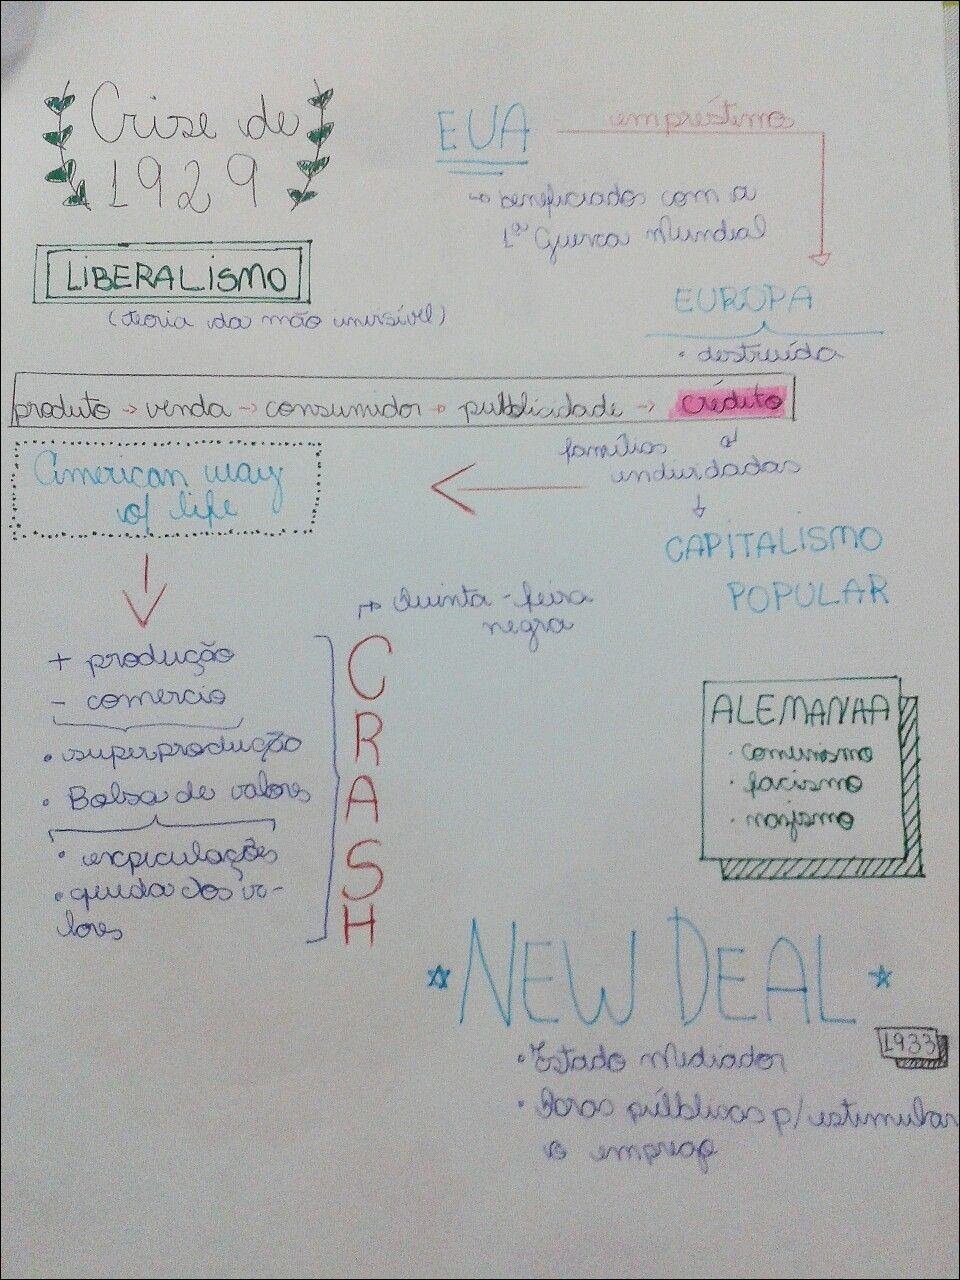 Crise de
1929
EUA
empréstimo
→ beneficiados com a
1ª Guerra Mundial
LIBERALISMO
(teoria da mão invisível)
EUROPA
• destruída
produto → venda → consumidor → publicidade → crédito
famílias
endividadas
American way
of life
CAPITALISMO
POPULAR
→ Quinta-feira
negra
+ produção
- comercio
• superprodução
• Bolsa de valores
• especulações
• queda dos va-
lores
CRASH
ALEMANHA
• comunismo
• facismo
• nazismo
NEW DEAL
1933
• Estado Mediador
• Obras públicas p/ estimular
o emprego